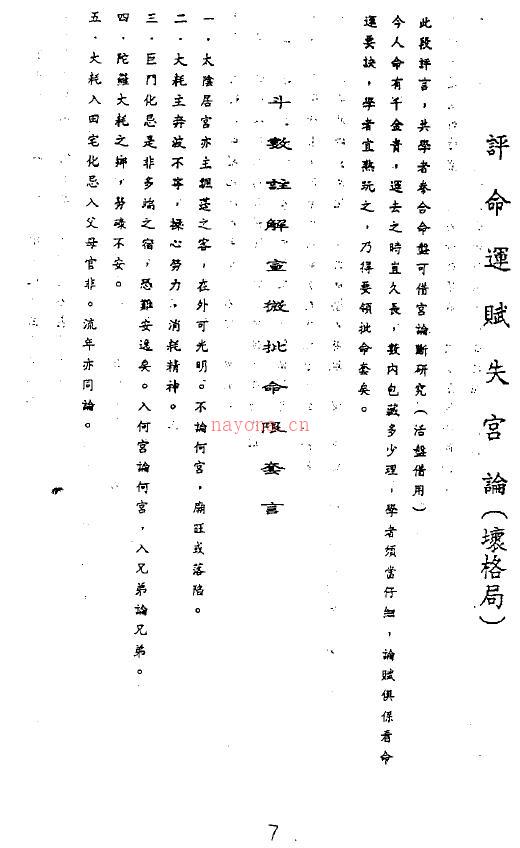 評命運賦失宮論(壞格局)
此段評言,共學者參合命盤可借宮論斷研究(活盤借用)
今人命有千金貴,運去之時豈久長,數内包藏多少理,學者須當仔細,論賦俱係看命
運要訣,學者宜熟玩之,乃得要領批命套矣。
斗數註解宣微批命限套言
一．太陰居宮亦主飄蓬之客,在外可光明。不論何宮,廟旺或落陷。
二．大耗主奔波不寧,操心勞力,消耗精神。
三．巨門化忌是非多端之宿,恐難安逸矣。入何宮論何宮,入兄弟論兄弟。
四．陀羅大耗之鄉,勞碌不安。
五．大耗入田宅化忌入父母官非。流年亦同論。
nayona.cn
7